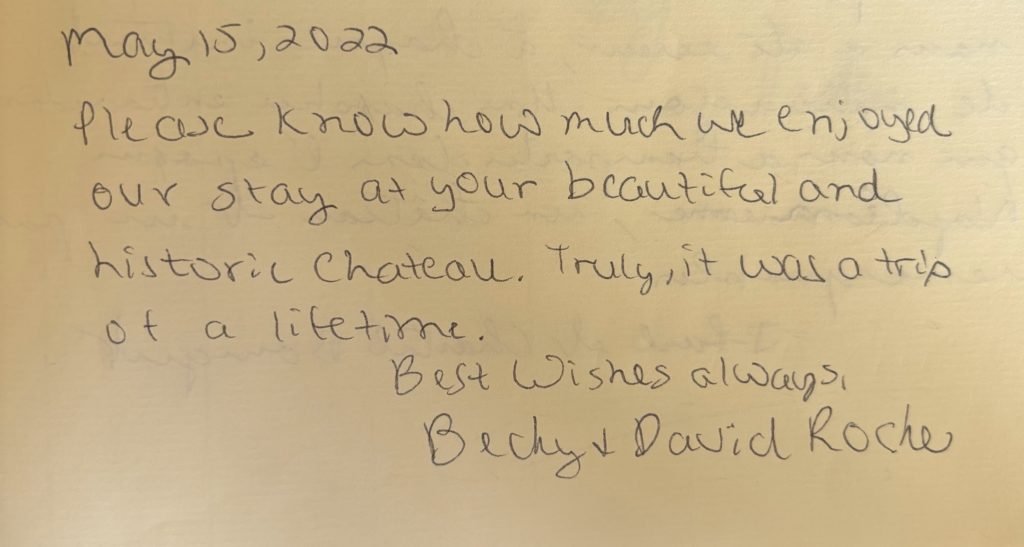 May 15, 2022
Please know how much we enjoyed
our stay at your beautiful and
historic Chateau. Truly, it was a trip
of a lifetime.
Best Wishes always,
Becky & David Roche